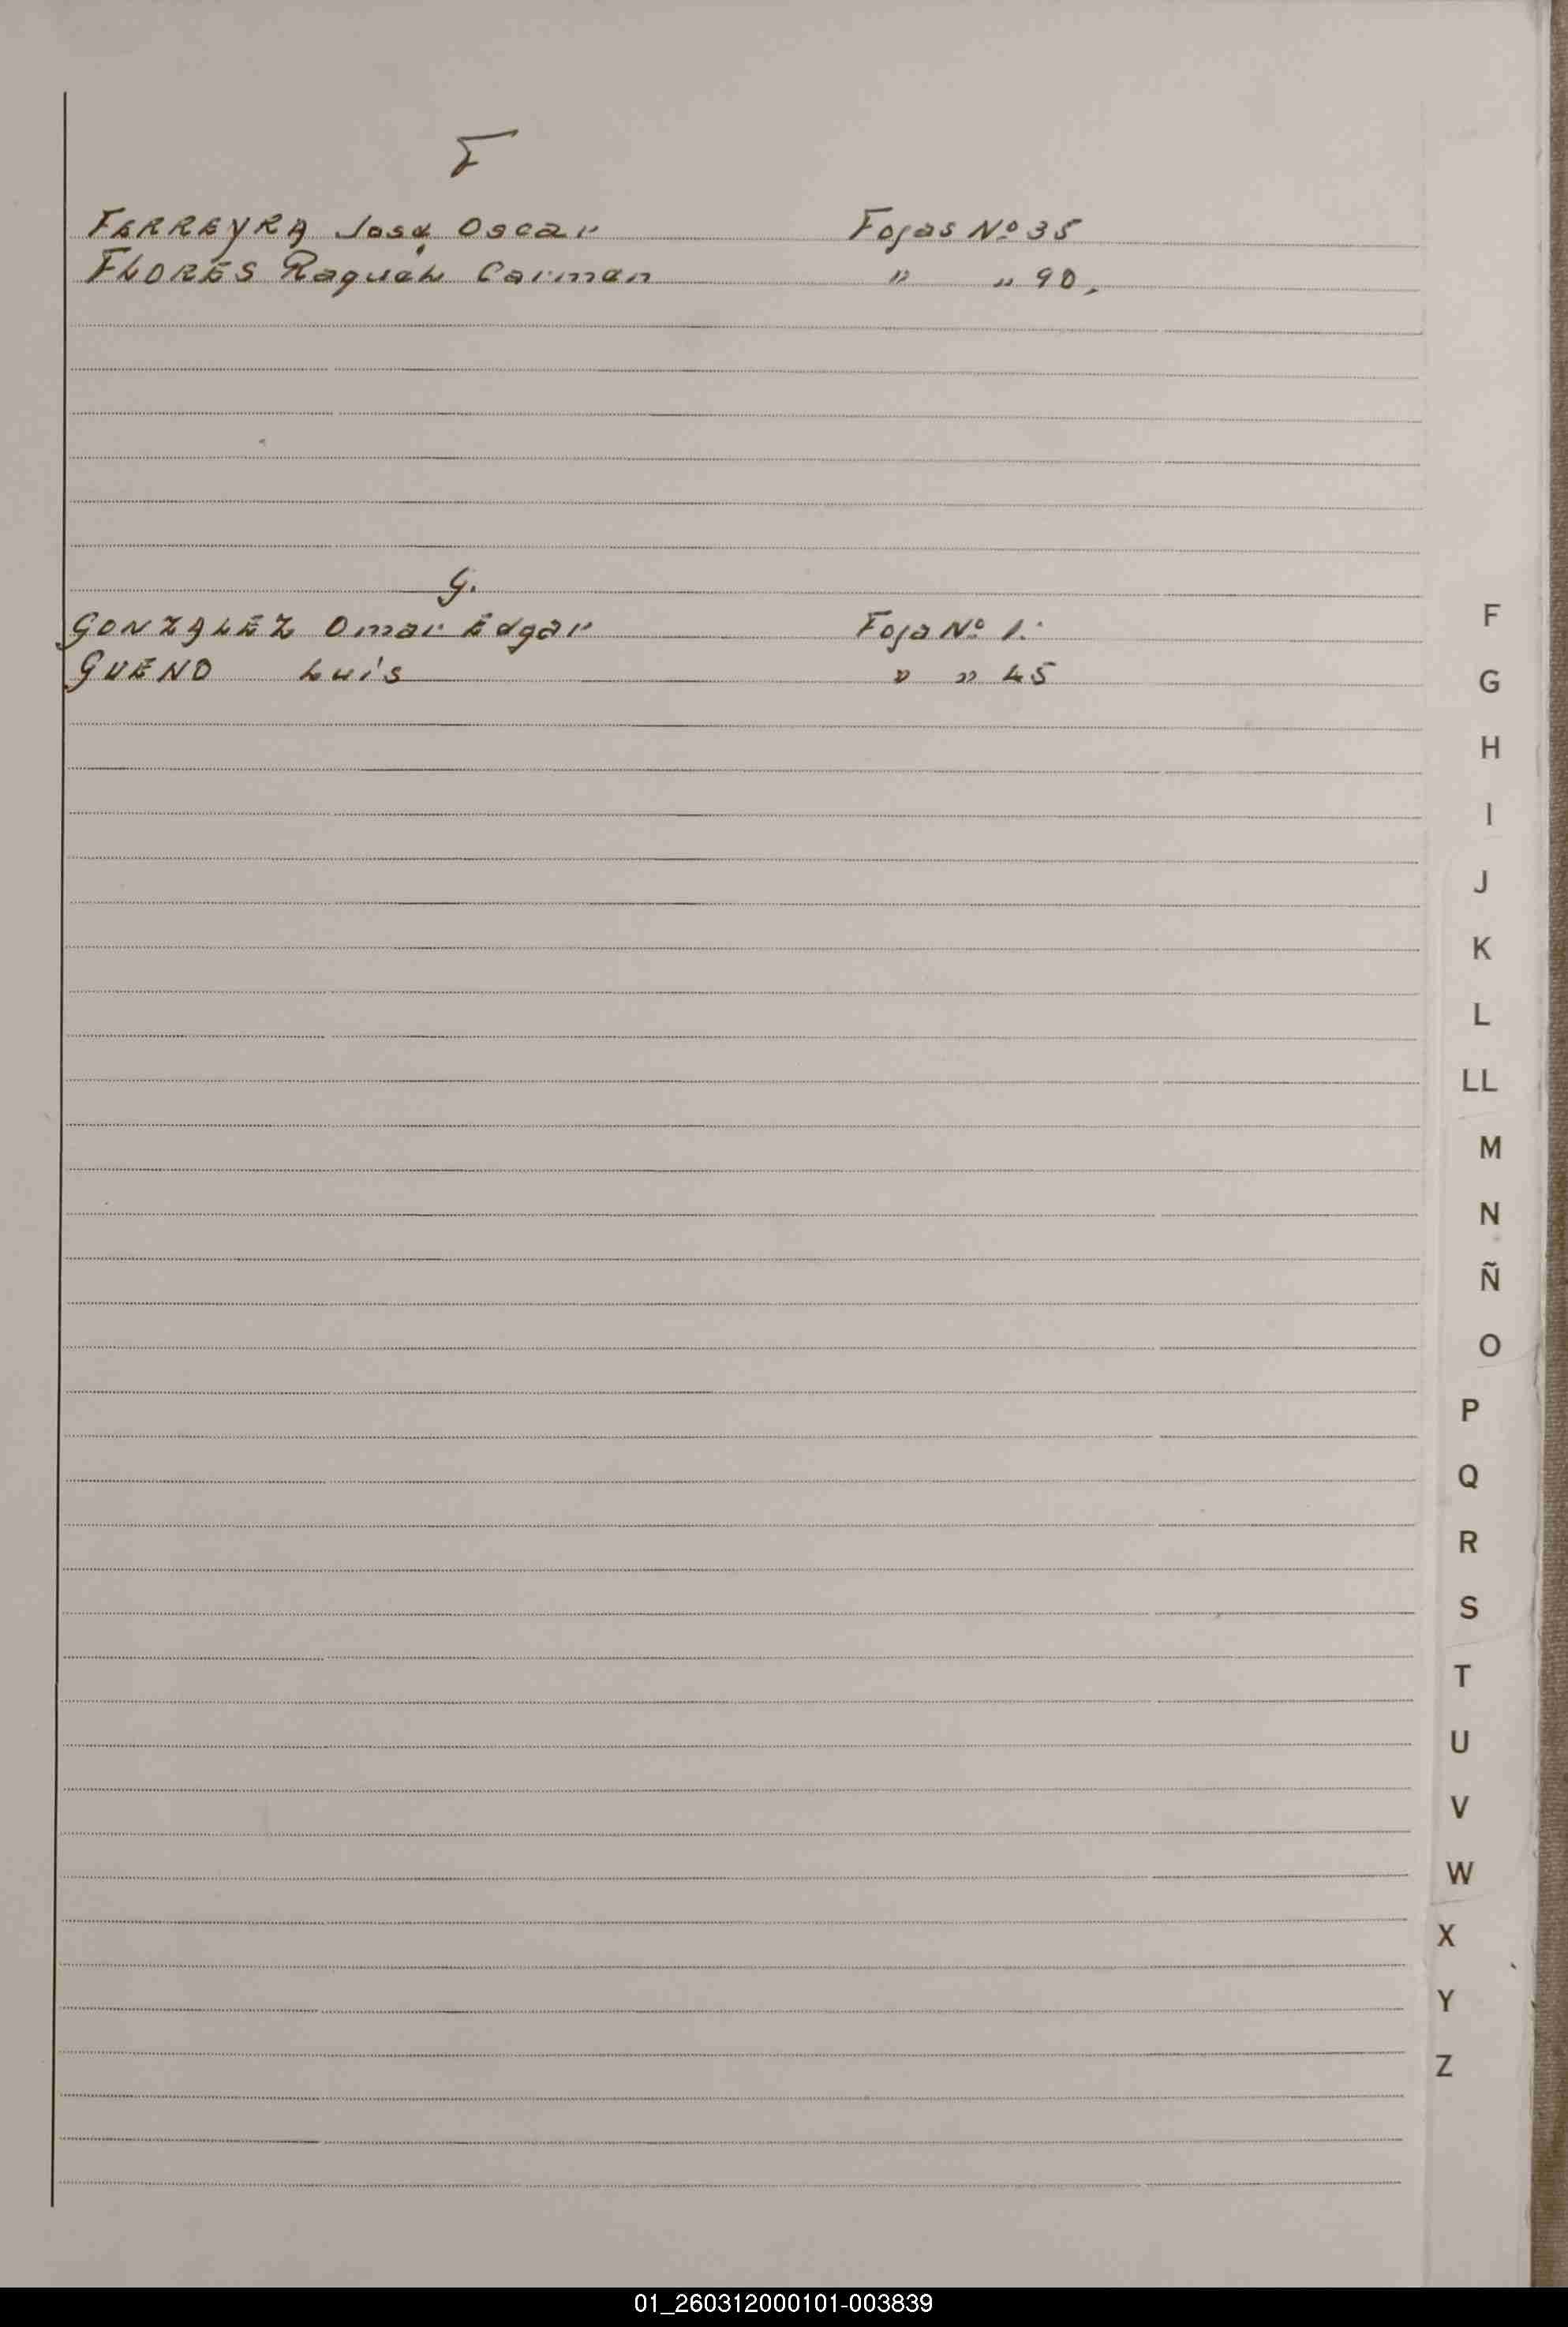 F
FERREYRA José Oscar Fojas Nº 35
FLORES Raquel Carmen " " 90.
G.
GONZALEZ Omar Edgar Foja Nº 1.
GUENO Luis " " 45
F
G
H
I
J
K
L
LL
M
N
Ñ
O
P
Q
R
S
T
U
V
W
X
Y
Z
01_260312000101-003839